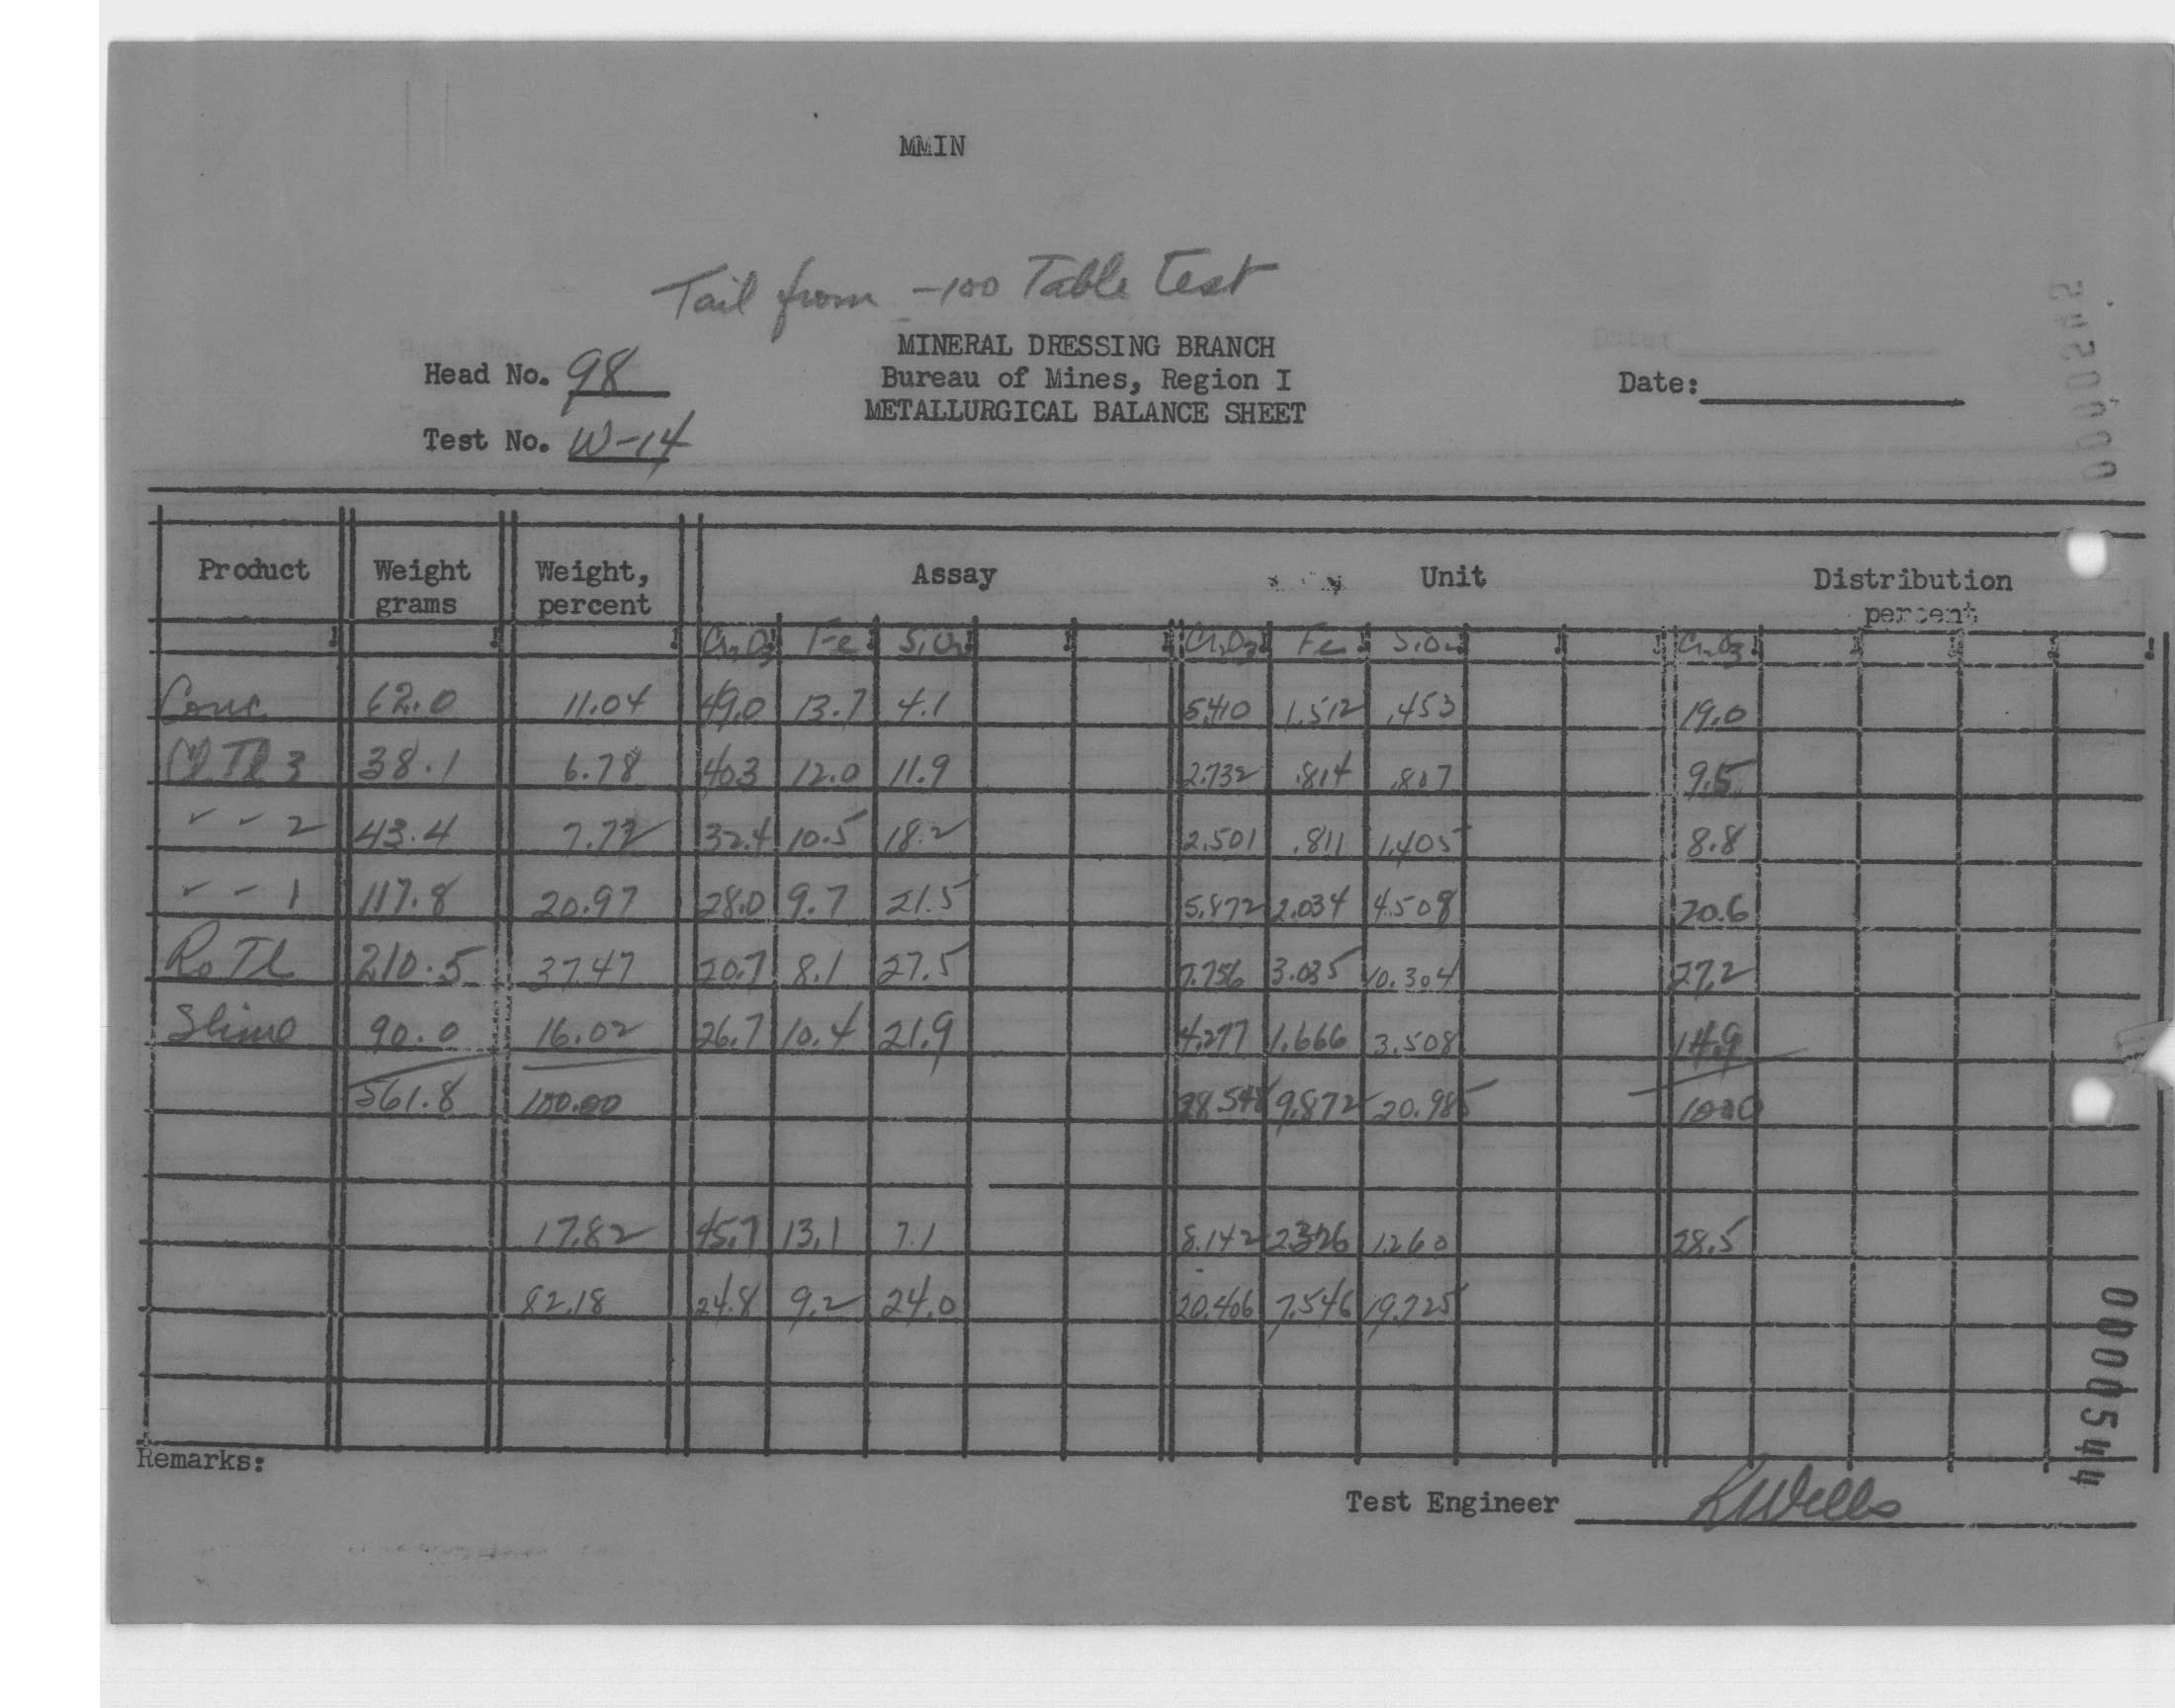 MMIN
Tail from -100 Table Test
MINERAL DRESSING BRANCH
Head No. 98 Bureau of Mines, Region I Date:
METALLURGICAL BALANCE SHEET
Test No. W-14
Product Weight grams Weight, percent Assay Unit Distribution percent
Cr2O3 Fe SiO2 Cr2O3 Fe SiO2 Cr2O3
Conc 62.0 11.04 49.0 13.7 4.1 5.410 1.512 .453 19.0
Cl Tl 3 38.1 6.78 40.3 12.0 11.9 2.732 .814 .807 9.5
" " 2 43.4 7.72 32.4 10.5 18.2 2.501 .811 1.405 8.8
" " 1 117.8 20.97 28.0 9.7 21.5 5.872 2.034 4.508 20.6
Ro Tl 210.5 37.47 20.7 8.1 27.5 7.756 3.035 10.304 27.2
Slime 90.0 16.02 26.7 10.4 21.9 4.277 1.666 3.508 14.9
561.8 100.00 28.548 9.872 20.985 100.0
17.82 45.7 13.1 7.1 8.142 2.326 1.260 28.5
82.18 24.8 9.2 24.0 20.406 7.546 19.725
Remarks:
Test Engineer KWells
0000544